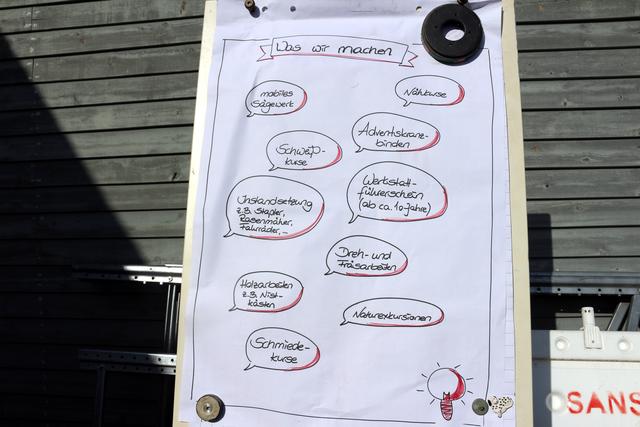 Was wir machen
mobiles
Sägewerk
Nähkurse
Adventskranz-
binden
Schweiß-
kurse
Werkstatt-
führerschein
(ab ca. 10 Jahre)
Instandsetzung
z.B. Stapler,
Rasenmäher,
Fahrräder,...
Dreh- und
Fräsarbeiten
Holzarbeiten
z.B. Nist-
kästen
Naturexkursionen
Schmiede-
kurse
SANS